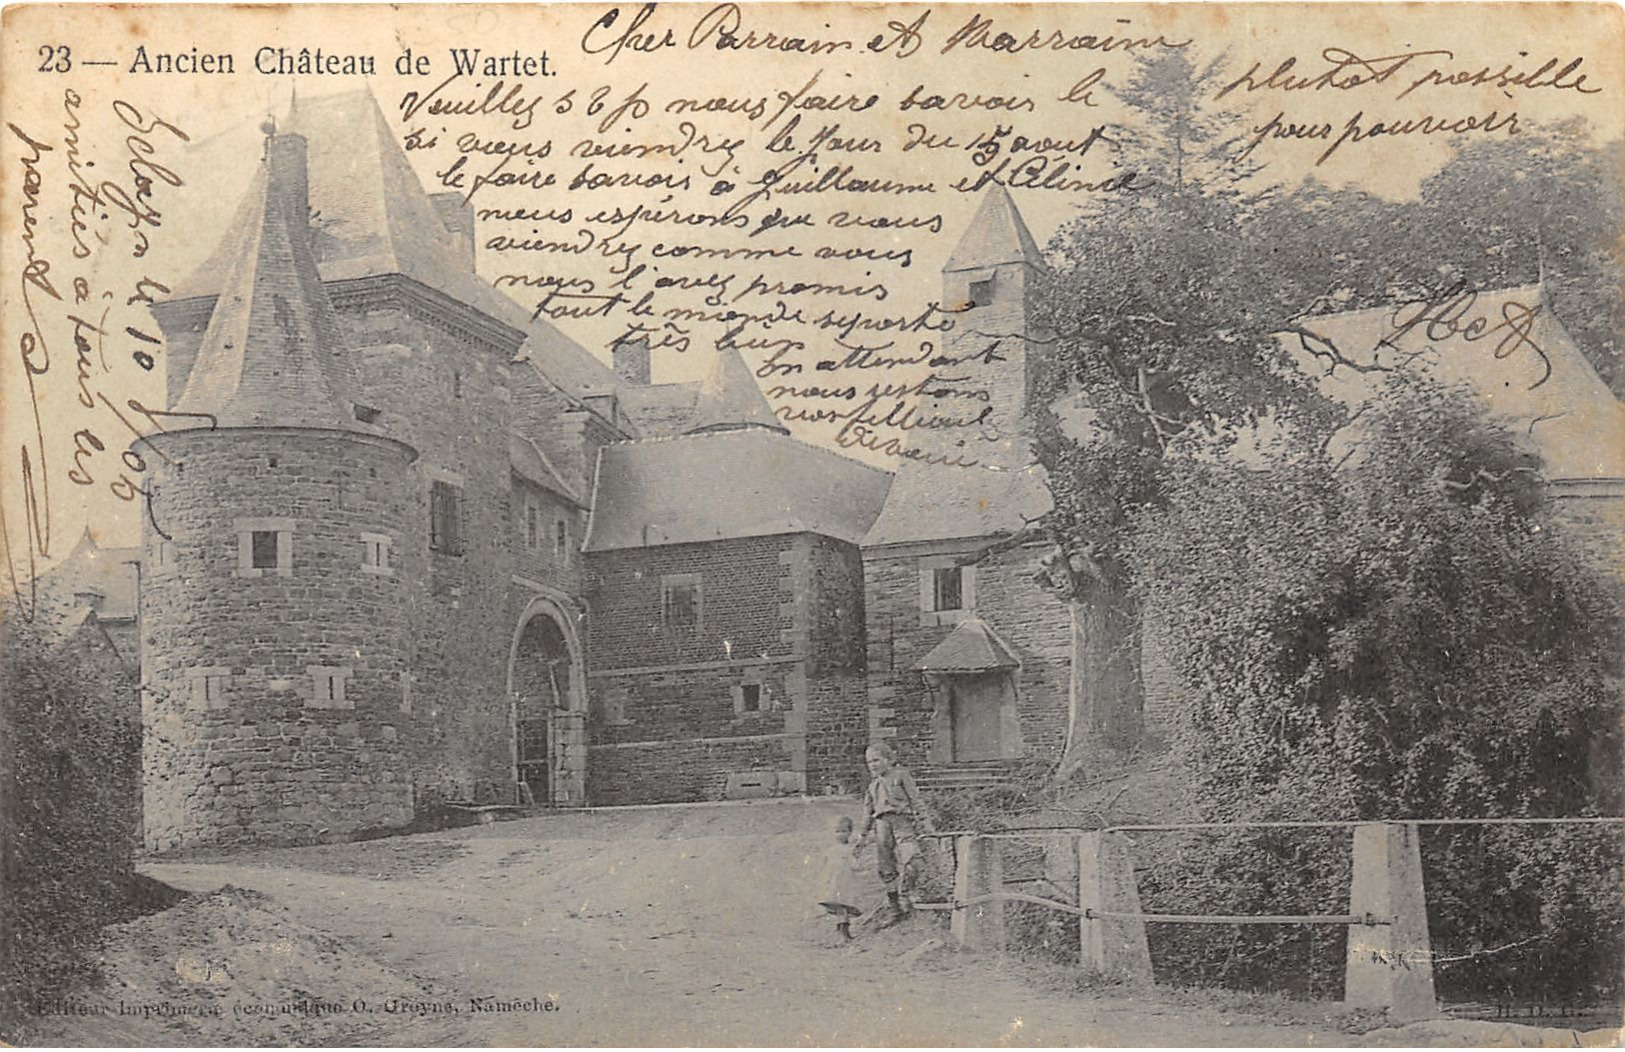 23 — Ancien Château de Wartet.
Cher Parrain et Marraine
Veuillez s v p nous faire savoir le
plutôt possible
si vous viendrez le jour du 15 aout
pour pouvoir
le faire savoir à Guillaume et Céline
nous espérons que vous
viendrez comme vous
nous l'avez promis
tout le monde se porte
très bien
En attendant
nous restons
vos filleuls
Sclayn le 10/8/05
amitiés à tous les
parents
Editeur Imprimerie économique O. Groyne, Namêche.